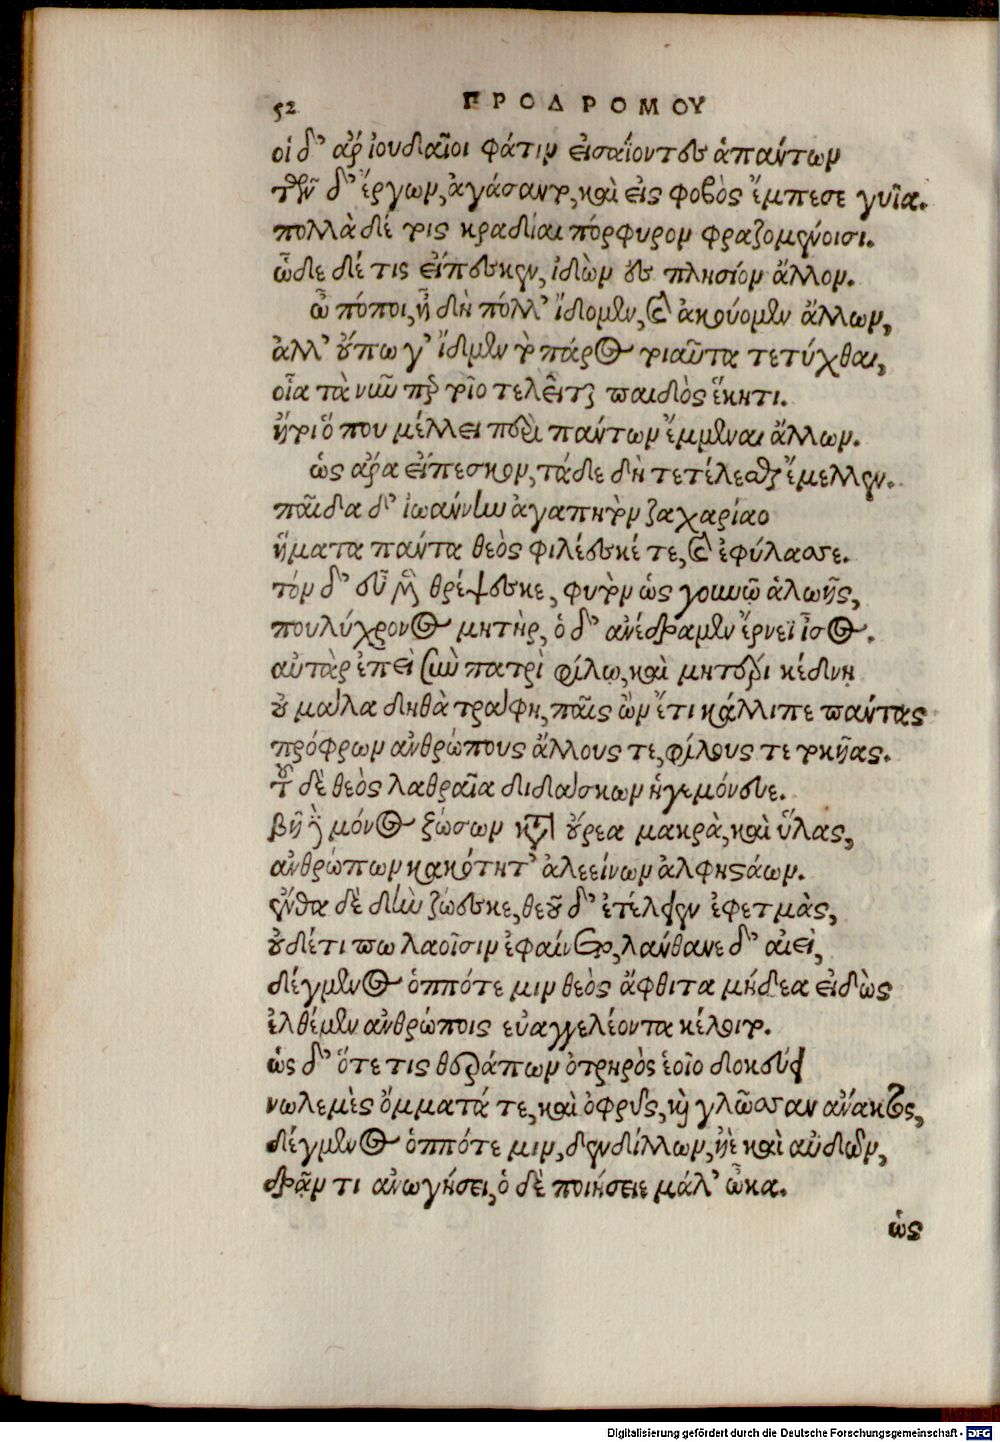 52 ΠΡΟΔΡΟΜΟΥ
οἱ δ' ἄρ ἰουδαῖοι φάτιν εἰσαΐοντες ἁπάντων
τῶν δ' ἔργων, ἀγάσαντο, καὶ εἰς φοβὸς ἔμπεσε γυῖα.
πολλὰ δέ τοις κραδίαι πόρφυρον φραζομένοισι.
ὧδε δέ τις εἴπεσκεν, ἰδὼν ἐς πλησίον ἄλλον.
ὢ πόποι, ἦ δὴ πόλλ' ἴδομεν, καὶ ἀκούομεν ἄλλων,
ἀλλ' οὔπω γ' ἴδμεν τὸ πάρος τοιαῦτα τετύχθαι,
οἷα τὰ νῦν περ τοῖο τελεῖται παιδὸς ἕκητι.
ἤτοι ὅ που μέλλει περὶ πάντων ἔμμεναι ἄλλων.
ὡς ἄρα εἴπεσκον, τάδε δὴ τετέλεσθαι ἔμελλεν.
παῖδα δ' ἰωάννην ἀγαπητὸν ζαχαρίαο
ἤματα πάντα θεὸς φιλέεσκέ τε, καὶ ἐφύλασσε.
τόν δ' εὖ μὲν θρέψεσκε, φυτὸν ὡς γουνῷ ἁλωῆς,
πουλύχρονος μητὴρ, ὁ δ' ἀνέδραμεν ἔρνεϊ ἶσος.
αὐτὰρ ἐπεὶ σὺν πατρὶ φίλῳ, καὶ μητέρι κέδνῃ
οὐ μάλα δηθὰ τράφη, παῖς ὢν ἔτι κάλλιπε πάντας
πρόφρων ἀνθρώπους ἄλλους τε, φίλους τε τοκῆας.
τοῦ δὲ θεὸς λαθραῖα διδάσκων ἡγεμόνευε.
βῆ γὰρ μόνος ζώσων κατ' οὔρεα μακρὰ, καὶ ὕλας,
ἀνθρώπων κακότητ' ἀλεείνων ἀλφηστάων.
ἔνθα δὲ δὴν ζώεσκε, θεοῦ δ' ἐτέλεσεν ἐφετμὰς,
οὐδέτι πω λαοῖσιν ἐφαίνετο, λάνθανε δ' αἰεὶ,
δέγμενος ὁππότε μιν θεὸς ἄφθιτα μήδεα εἰδὼς
ἐλθέμεν ἀνθρώποις εὐαγγελέοντα κέλοιτο.
ὡς δ' ὅτε τις θεράπων ὀτρηρὸς ἑοῖο δοκεύει
νωλεμὲς ὄμματά τε, καὶ ὀφρῦς, καὶ γλῶσσαν ἄνακτος,
δέγμενος ὁππότε μιν, δενδίλλων, ἠὲ καὶ αὐδῶν,
δρᾷν τι ἀνωγήσει, ὁ δὲ ποιήσειε μάλ' ὦκα.
ὡς
Digitalisierung gefördert durch die Deutsche Forschungsgemeinschaft - DFG